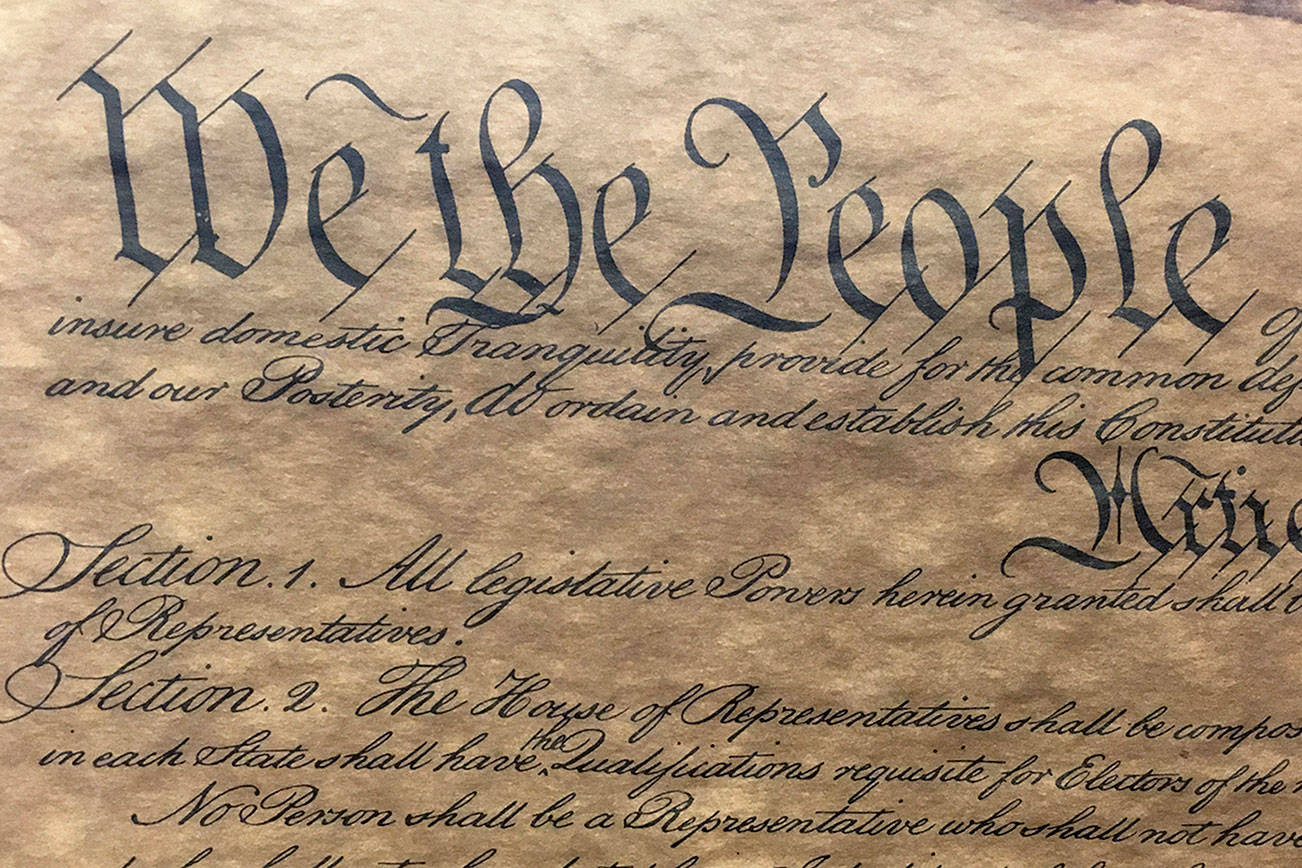 We the People
insure domestic Tranquility, provide for the common def
and our Posterity, do ordain and establish this Constituti
Artic
Section. 1. All legislative Powers herein granted shall b
of Representatives.
Section. 2. The House of Representatives shall be compos
in each State shall have the Qualifications requisite for Electors of the
No Person shall be a Representative who shall not have